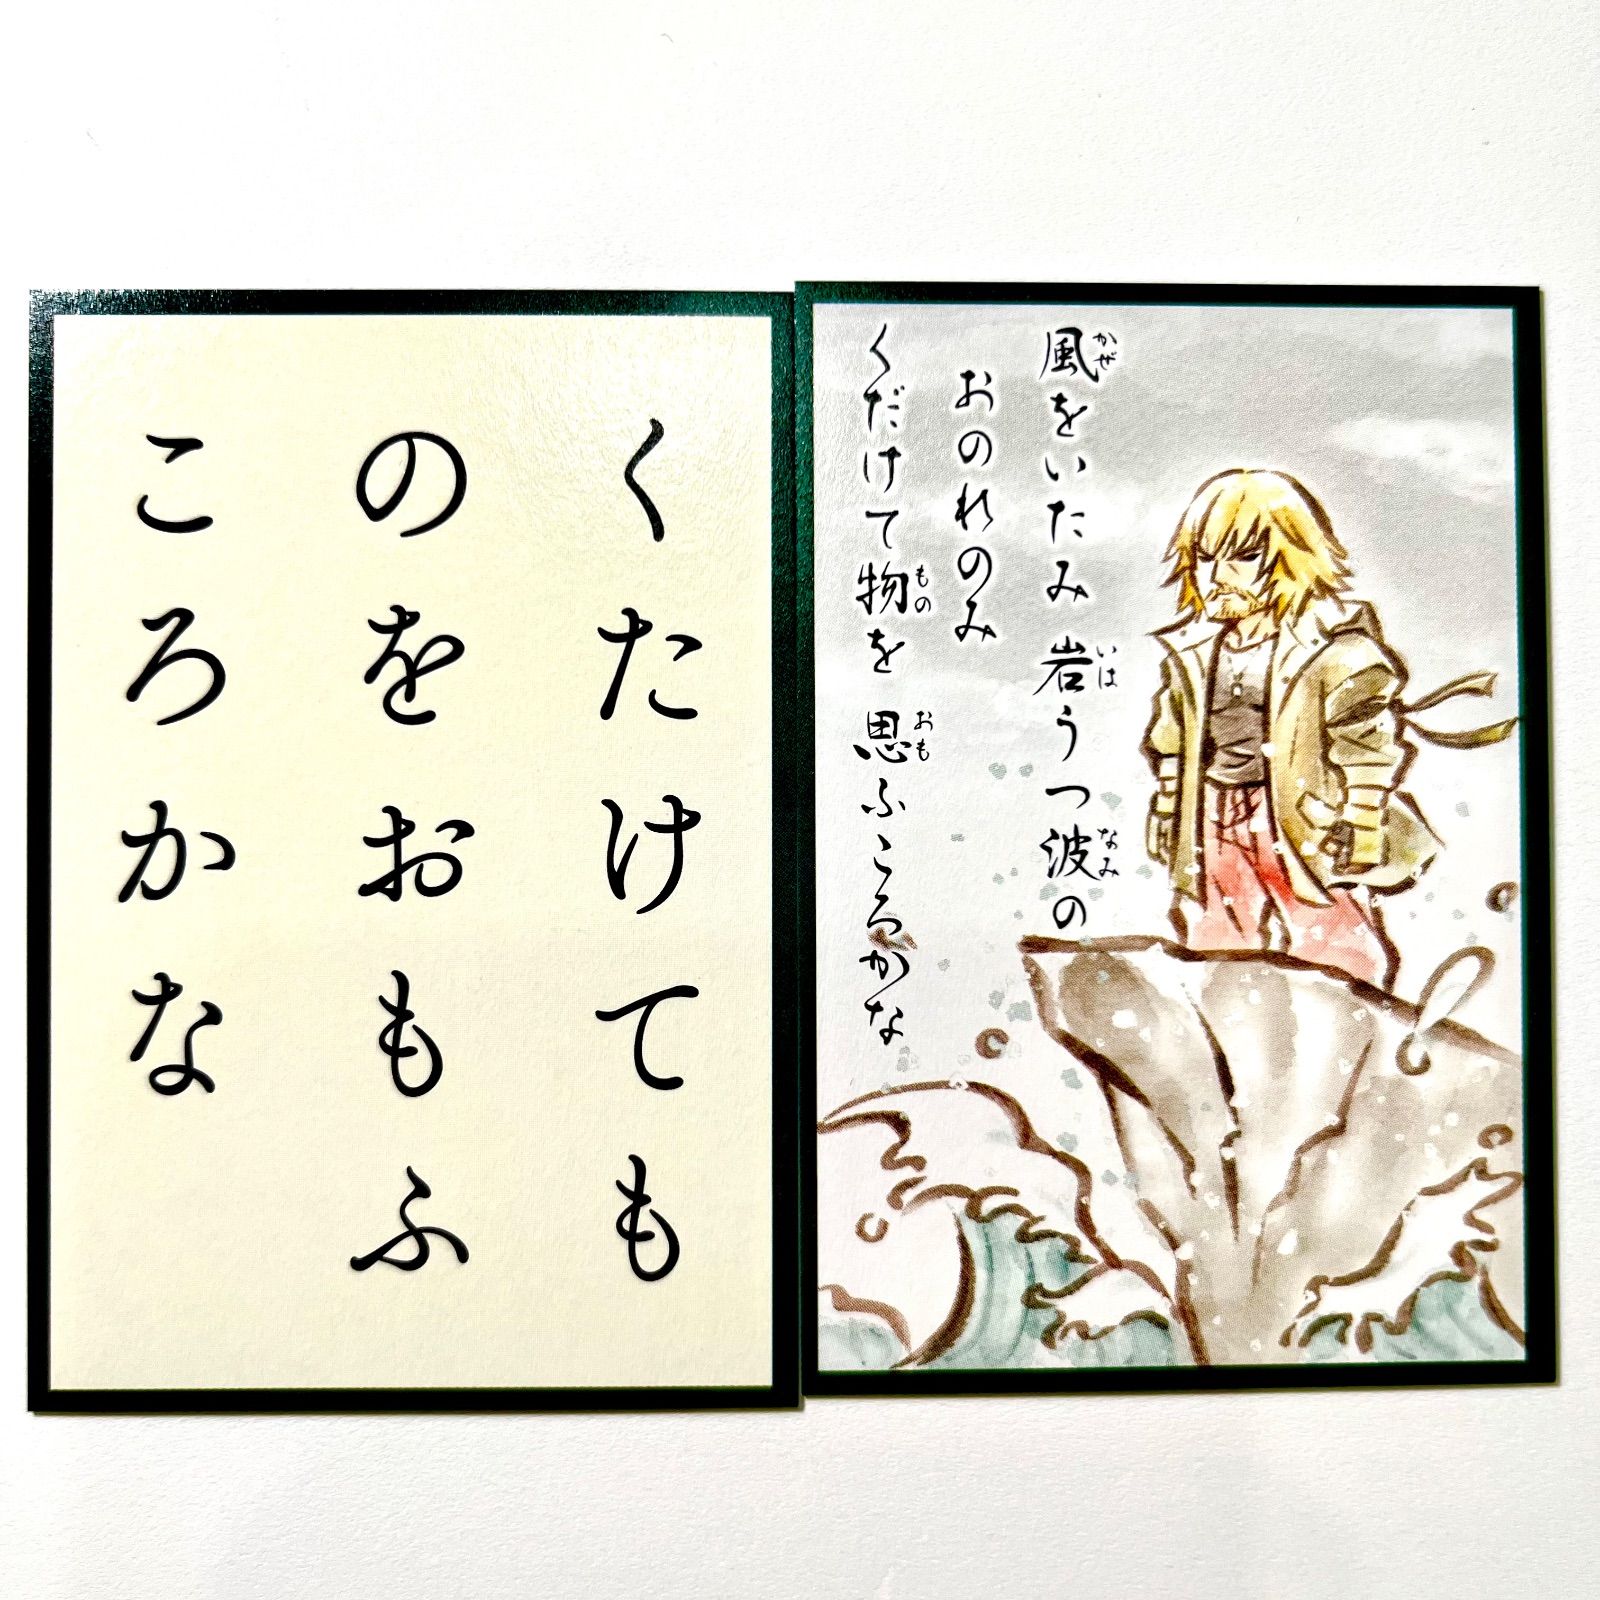 くたけても
のをおもふ
ころかな
風をいたみ 岩うつ波の
おのれのみ
くだけて物を 思ふころかな
かぜ
いは
なみ
もの
おも